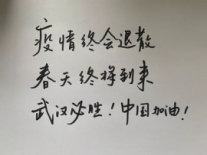 疫情终会退散
春天终将到来
武汉必胜！中国加油！